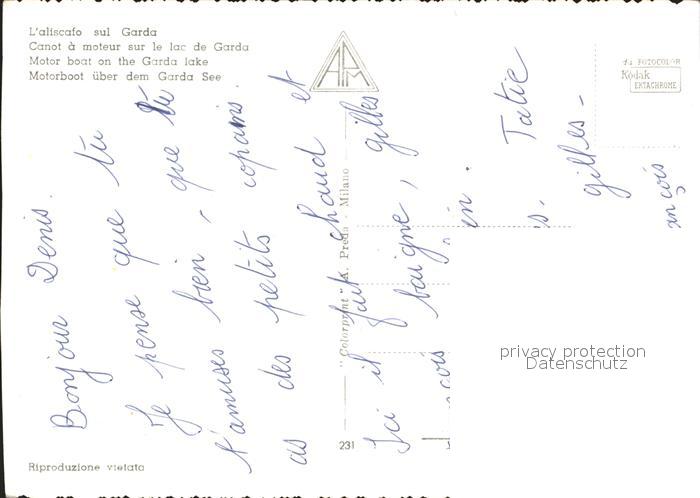 L'aliscafo sul Garda
Canot à moteur sur le lac de Garda
Motor boat on the Garda lake
Motorboot über dem Garda See
APM
da FOTOCOLOR
Kodak
EKTACHROME
"Colorprint" A. Preda - Milano
231
Riproduzione vietata
Bonjour Denis.
Je pense que tu
t'amuses bien, que tu
as des petits copains.
Ici il fait chaud et
baigne, gilles
in.
Tatie
gilles -
privacy protection
Datenschutz